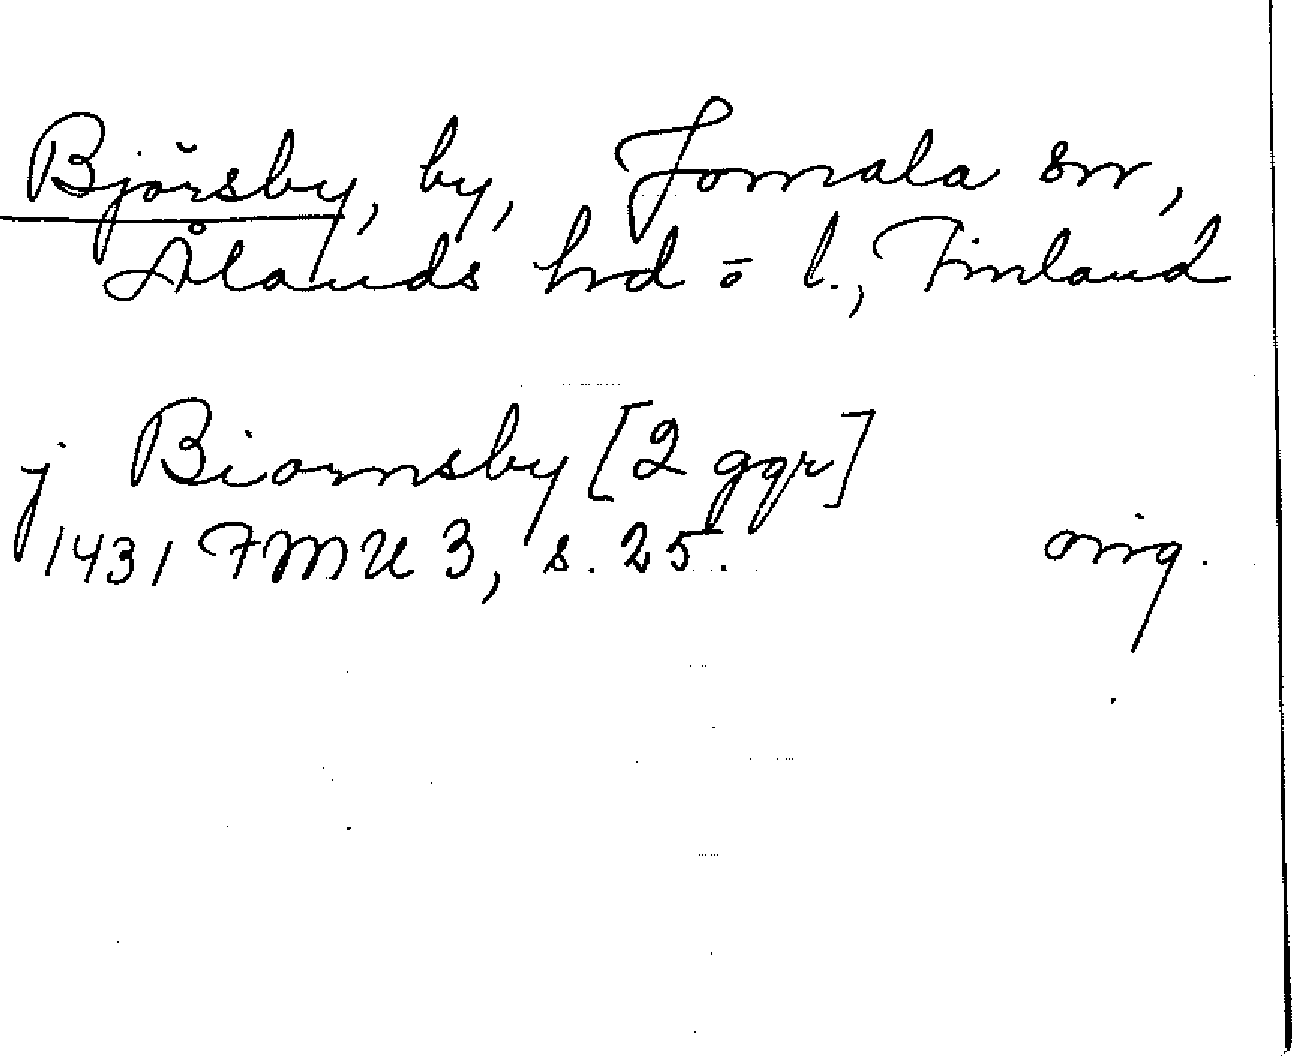 Björsby, by, Jomala sn,
Ålands hd ō l., Finland
j Biornsby [2 ggr]
1431 FMU 3, s. 25. orig.